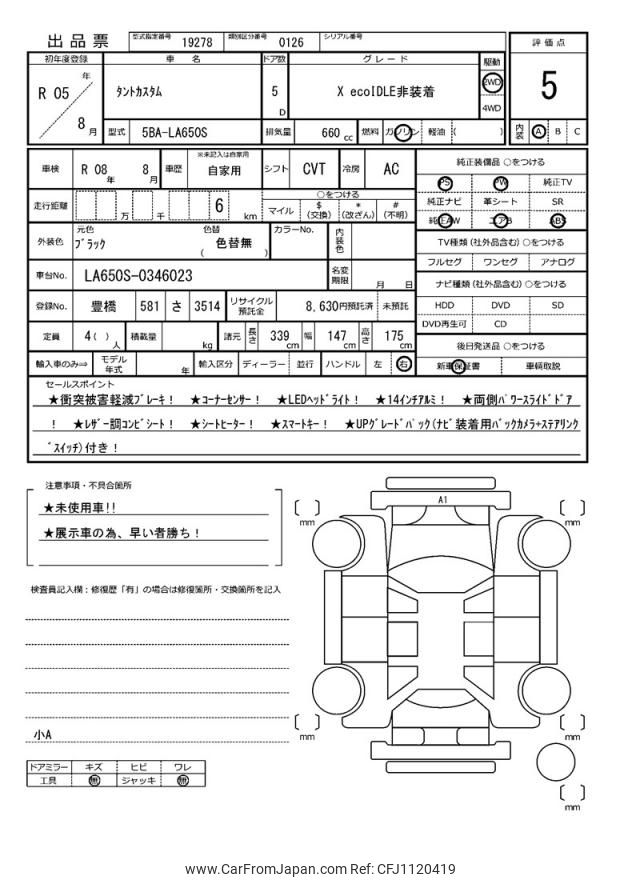 出品票 型式指定番号 19278 類別区分番号 0126 シリアル番号
初年度登録 車名 ドア数 グレード 駆動 評価点
R 05 年 8 月 タントカスタム 5 D X ecoIDLE非装着 2WD 4WD 5
型式 5BA-LA650S 排気量 660 cc 燃料 ガソリン 軽油 ( ) 内装 A B C
車検 R 08 年 8 月 車歴 ※未記入は自家用 自家用 シフト CVT 冷房 AC
純正装備品 ○をつける
PS PW 純正TV
純正ナビ 革シート SR
純正AW エアB ABS
走行距離 万 千 6 km ○をつける マイル $ (交換) * (改ざん) # (不明)
外装色 元色 ブラック 色替 色替無 ( ) カラーNo. 内装色
TV種類 (社外品含む) ○をつける
フルセグ ワンセグ アナログ
車台No. LA650S-0346023 名変期限 月 日
ナビ種類 (社外品含む) ○をつける
HDD DVD SD
DVD再生可 CD
登録No. 豊橋 581 さ 3514 リサイクル預託金 8,630円預託済 未預託
定員 4( ) 人 積載量 kg 諸元 長さ 339 cm 幅 147 cm 高さ 175 cm
後日発送品 ○をつける
新車保証書 車輌取説
輸入車のみ⇒ モデル年式 年 輸入区分 ディーラー 並行 ハンドル 左 右
セールスポイント
★衝突被害軽減ブレーキ! ★コーナーセンサー! ★LEDヘッドライト! ★14インチアルミ! ★両側パワースライドドア
! ★レザー調コンビシート! ★シートヒーター! ★スマートキー! ★UPグレードパック(ナビ装着用バックカメラ+ステアリング
スイッチ)付き!
注意事項・不具合箇所
★未使用車!!
★展示車の為、早い者勝ち!
検査員記入欄:修復歴「有」の場合は修復箇所・交換箇所を記入
小A
ドアミラー キズ ヒビ ワレ
工具 無 ジャッキ 無
A1
mm
mm
mm
mm
mm
www.CarFromJapan.com Ref: CFJ1120419